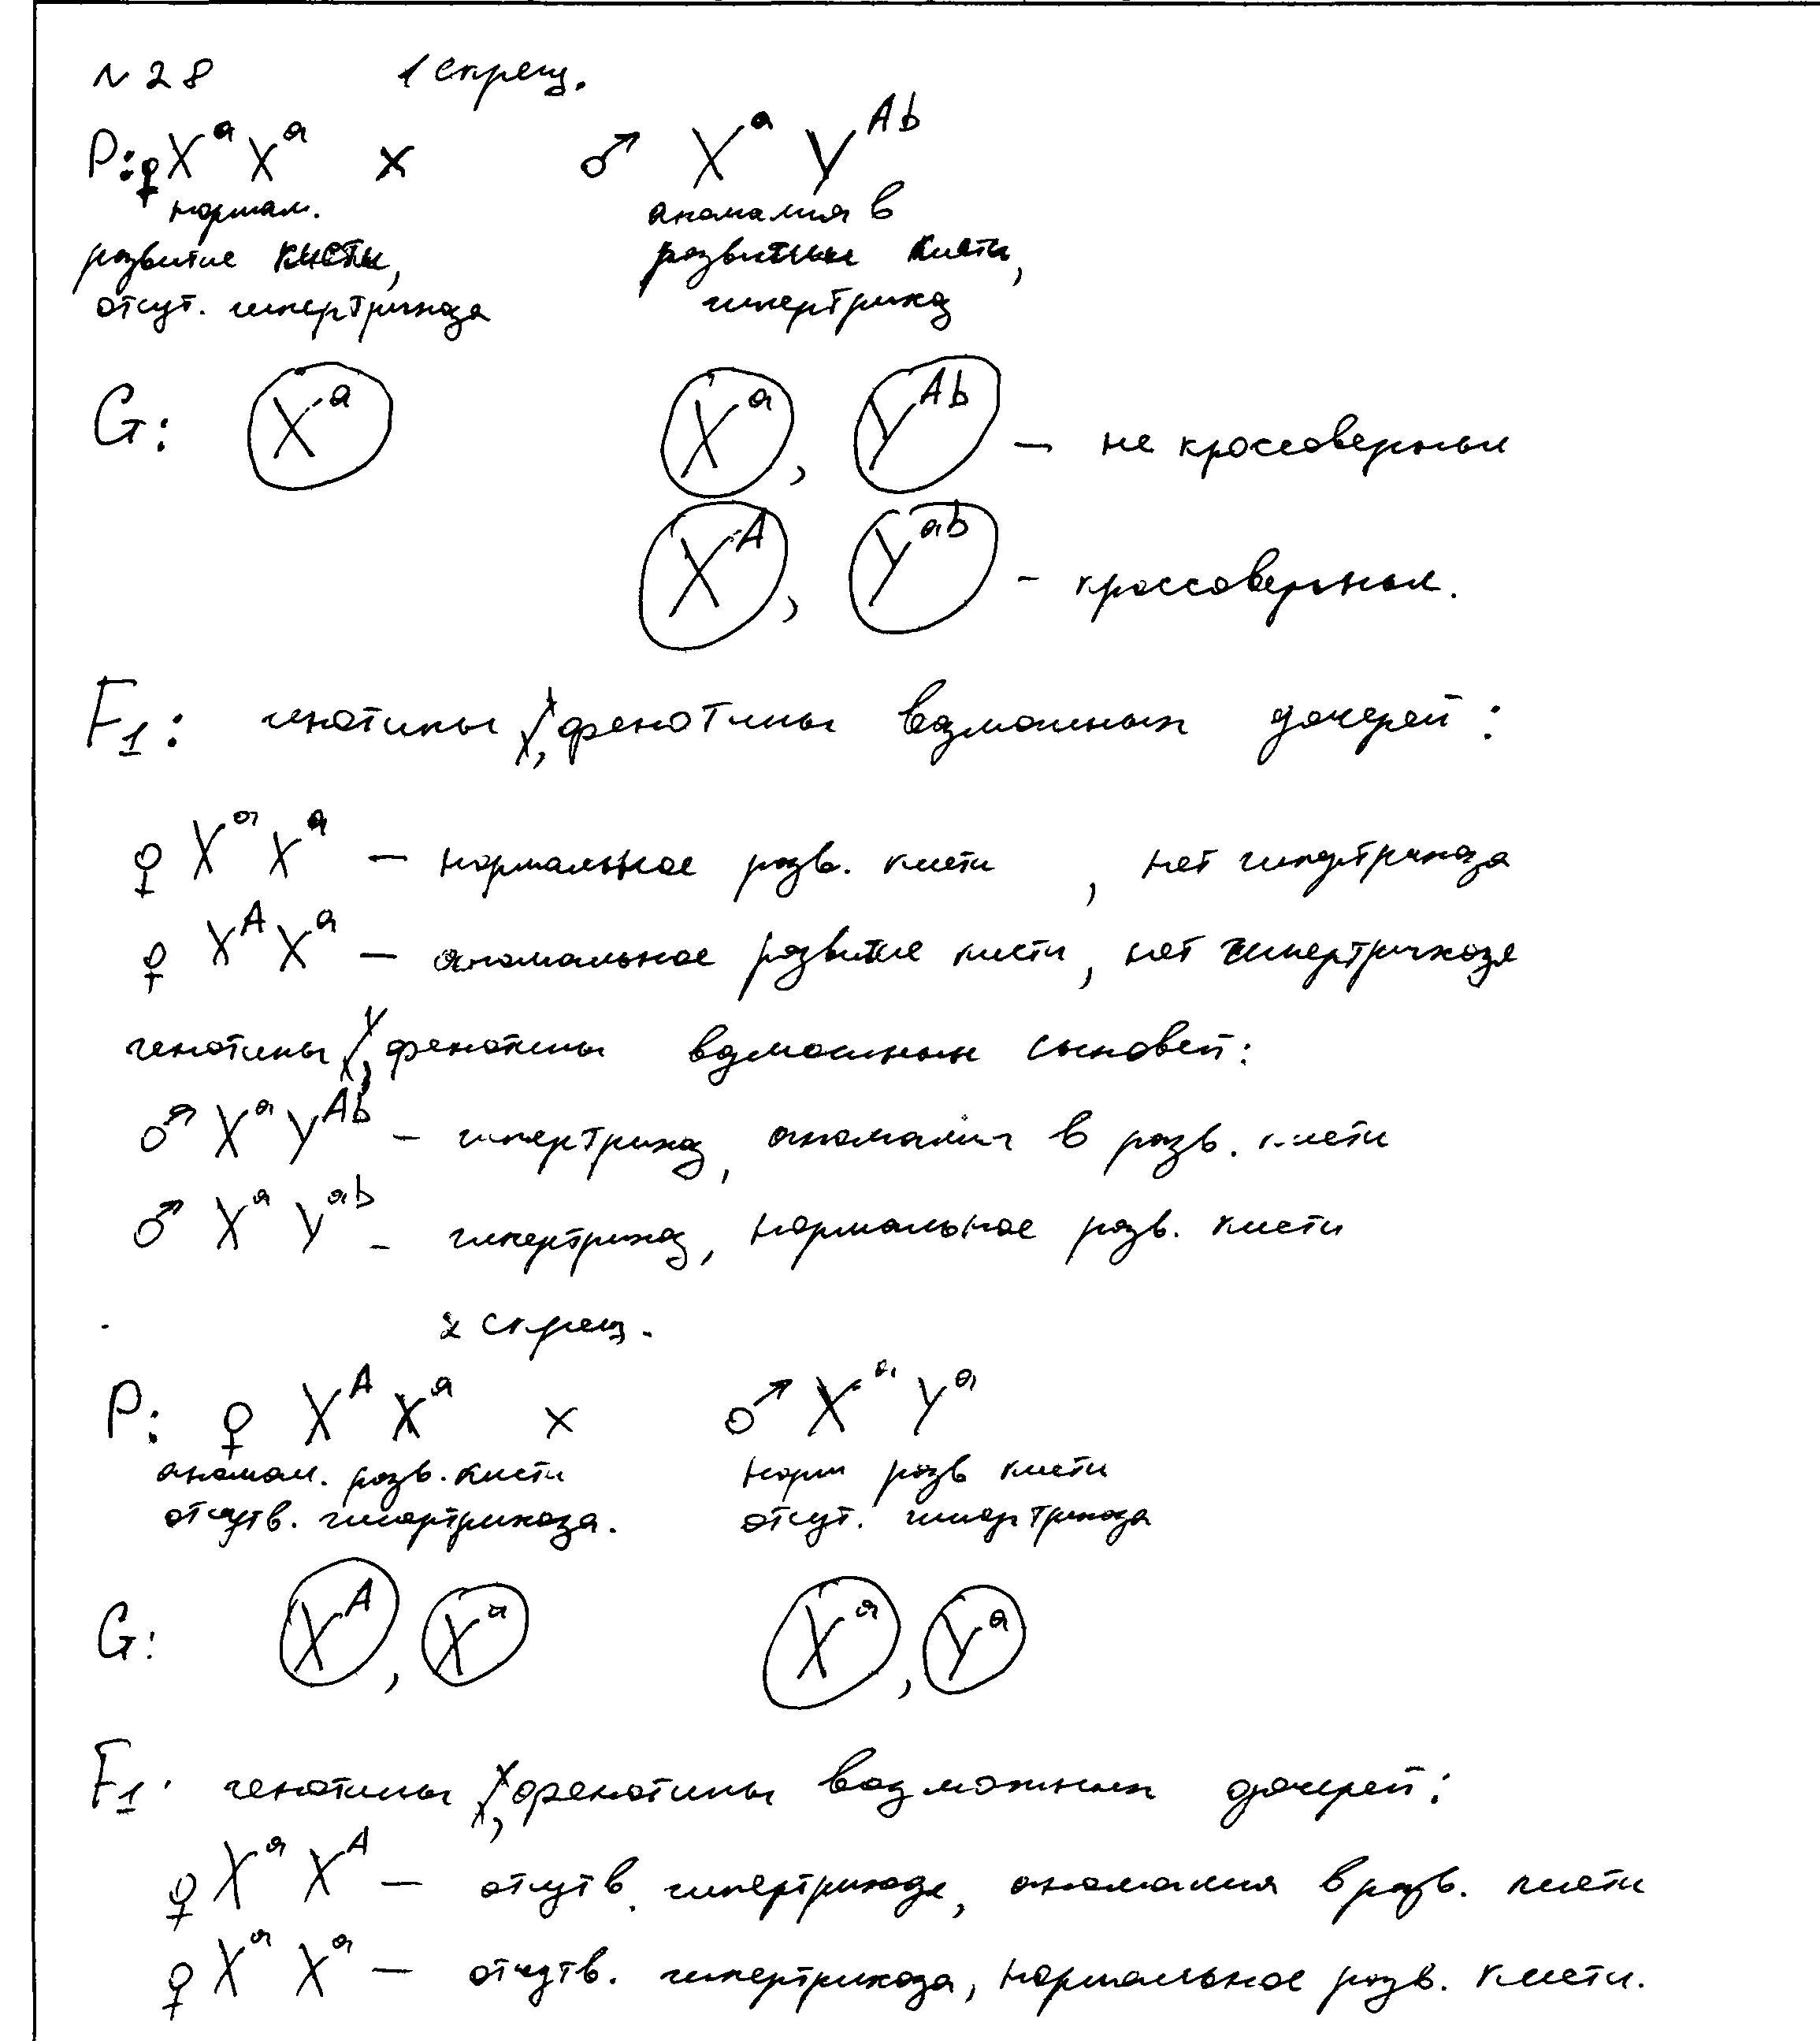 N28 1 скрещ.
P: ♀ XᵃXᵃ x ♂ XᵃYᴬᵇ
нормал. аномалия в
развитие кисти, развитии кисти,
отсут. гипертрихоза гипертрихоз
G: Xᵃ Xᵃ, Yᴬᵇ — не кроссоверные
Xᴬ, Yᵃᵇ - кроссоверные.
F₁: генотипы, фенотипы возможных дочерей:
♀ XᵃXᵃ — нормальное разв. кисти, нет гипертрихоза
♀ XᴬXᵃ — аномальное развитие кисти, нет гипертрихоза
генотипы, фенотипы возможных сыновей:
♂ XᵃYᴬᵇ — гипертрихоз, аномалия в разв. кисти
♂ XᵃYᵃᵇ - гипертрихоз, нормальное разв. кисти
2 скрещ.
P: ♀ XᴬXᵃ x ♂ XᵃYᵃ
аномал. разв. кисти норм разв кисти
отсутв. гипертрихоза. отсут. гипертрихоза
G: Xᴬ, Xᵃ Xᵃ, Yᵃ
F₁: генотипы, фенотипы возможных дочерей:
♀ XᵃXᴬ — отсутв. гипертрихоза, аномалия в разв. кисти
♀ XᵃXᵃ — отсутв. гипертрихоза, нормальное разв. кисти.